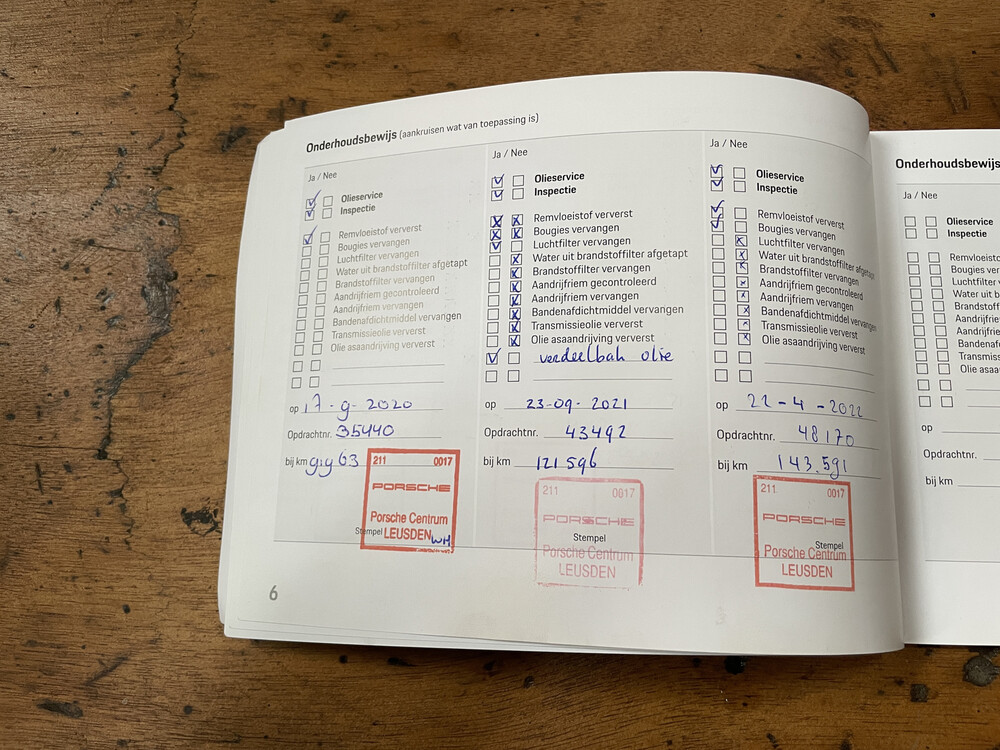 Onderhoudsbewijs (aankruisen wat van toepassing is)
Ja / Nee
Olieservice
Inspectie
Remvloeistof ververst
Bougies vervangen
Luchtfilter vervangen
Water uit brandstoffilter afgetapt
Brandstoffilter vervangen
Aandrijfriem gecontroleerd
Aandrijfriem vervangen
Bandenafdichtmiddel vervangen
Transmissieolie ververst
Olie asaandrijving ververst
op 17-9-2020
Opdrachtnr. 35440
bij km 91963
211 0017
PORSCHE
Porsche Centrum
Stempel LEUSDEN WH
6
Ja / Nee
Olieservice
Inspectie
Remvloeistof ververst
Bougies vervangen
Luchtfilter vervangen
Water uit brandstoffilter afgetapt
Brandstoffilter vervangen
Aandrijfriem gecontroleerd
Aandrijfriem vervangen
Bandenafdichtmiddel vervangen
Transmissieolie ververst
Olie asaandrijving ververst
verdeelbak olie
op 23-09-2021
Opdrachtnr. 43492
bij km 121596
211 0017
PORSCHE
Stempel
Porsche Centrum
LEUSDEN
Ja / Nee
Olieservice
Inspectie
Remvloeistof ververst
Bougies vervangen
Luchtfilter vervangen
Water uit brandstoffilter afgetapt
Brandstoffilter vervangen
Aandrijfriem gecontroleerd
Aandrijfriem vervangen
Bandenafdichtmiddel vervangen
Transmissieolie ververst
Olie asaandrijving ververst
op 22-4-2022
Opdrachtnr. 48170
bij km 143.591
211 0017
PORSCHE
Stempel
Porsche Centrum
LEUSDEN
Onderhoudsbewijs
Ja / Nee
Olieservice
Inspectie
Remvloeisto
Bougies ver
Luchtfilter
Water uit b
Brandstof
Aandrijfri
Aandrijfri
Banden
Transmiss
Olie asaa
op
Opdrachtnr.
bij km